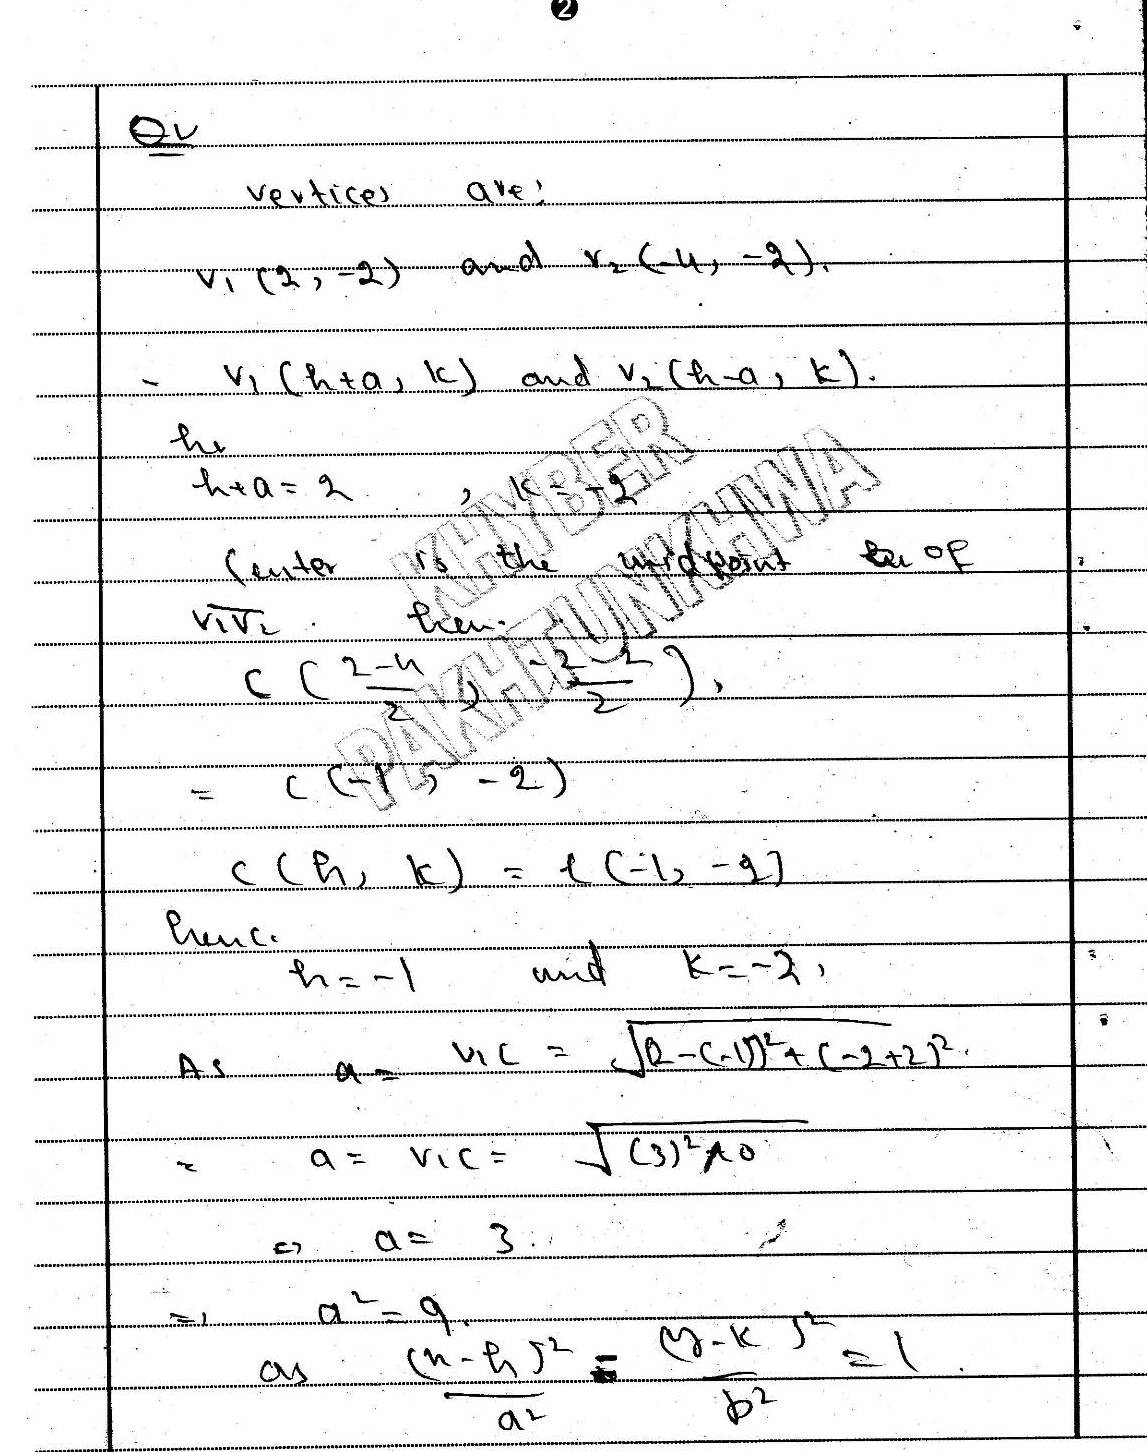 2
Qv
vertices are:
V₁ (2, -2) and V₂ (-4, -2).
- V₁ (h+a, k) and V₂ (h-a, k).
he
h+a = 2 , k = -2
Center is the midpoint of
V₁V₂ . then.
C ( 2-4/2 , -2-2/2 ) ,
= C (-1, -2)
C (h, k) = C (-1, -2)
henc.
h = -1 and k = -2 ,
As a = V₁C = √(2-(-1))² + (-2+2)² .
= a = V₁C = √(3)² + 0
⇒ a = 3 .
⇒ a² = 9.
as (x-h)²/a² - (y-k)²/b² = 1 .
KHYBER
PAKHTUNKHWA